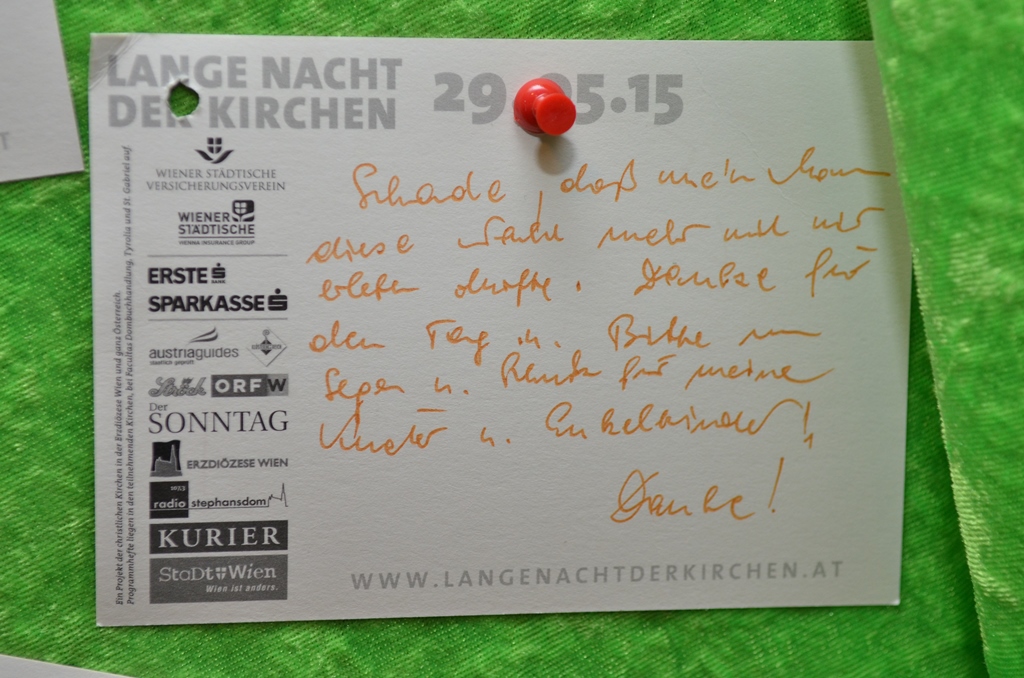 LANGE NACHT
DER KIRCHEN
29. 05.15
WIENER STÄDTISCHE
VERSICHERUNGSVEREIN
WIENER
STÄDTISCHE
VIENNA INSURANCE GROUP
ERSTE
BANK
SPARKASSE
austriaguides
Ströck ORF W
Der
SONNTAG
ERZDIÖZESE WIEN
radio stephansdom
KURIER
StaDt Wien
Wien ist anders.
Ein Projekt der christlichen Kirchen in der Erzdiözese Wien und ganz Österreich.
Programmhefte liegen in den teilnehmenden Kirchen, bei Facultas Dombuchhandlung, Tyrolia und St. Gabriel auf.
Schade, daß mein Mann
diese Nacht nicht mit mir
erleben durfte. Danke für
den Tag u. Bitte um
Segen u. für meine
Kinder u. Enkelkinder!
Danke!
WWW.LANGENACHTDERKIRCHEN.AT
T